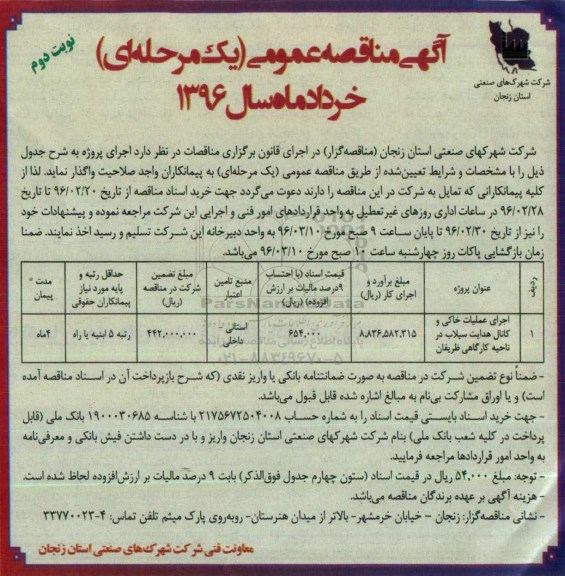 نوبت دوم
آگهی مناقصه عمومی (یک مرحله‌ای)
خردادماه سال ۱۳۹۶
شرکت شهرک‌های صنعتی
استان زنجان
شرکت شهرکهای صنعتی استان زنجان (مناقصه‌گزار) در اجرای قانون برگزاری مناقصات در نظر دارد اجرای پروژه به شرح جدول
ذیل را با مشخصات و شرایط تعیین‌شده از طریق مناقصه عمومی (یک مرحله‌ای) به پیمانکاران واجد صلاحیت واگذار نماید. لذا از
کلیه پیمانکارانی که تمایل به شرکت در این مناقصه را دارند دعوت می‌گردد جهت خرید اسناد مناقصه از تاریخ ۹۶/۰۲/۲۰ تا تاریخ
۹۶/۰۲/۲۸ در ساعات اداری روزهای غیرتعطیل به واحد قراردادهای امور فنی و اجرایی این شرکت مراجعه نموده و پیشنهادات خود
را نیز از تاریخ ۹۶/۰۲/۳۰ تا پایان ساعت ۹ صبح مورخ ۹۶/۰۳/۱۰ به واحد دبیرخانه این شرکت تسلیم و رسید اخذ نمایند. ضمنا
زمان بازگشایی پاکات روز چهارشنبه ساعت ۱۰ صبح مورخ ۹۶/۰۳/۱۰ می‌باشد.
ردیف | عنوان پروژه | مبلغ برآورد و اجرای کار (ریال) | قیمت اسناد (با احتساب ۹درصد مالیات بر ارزش افزوده) (ریال) | منبع تامین اعتبار | مبلغ تضمین شرکت در مناقصه (ریال) | حداقل رتبه و پایه مورد نیاز پیمانکاران حقوقی | مدت پیمان
۱ | اجرای عملیات خاکی و کانال هدایت سیلاب در ناحیه کارگاهی ظریفان | ۸,۸۳۶,۵۸۲,۳۱۵ | ۶۵۴,۰۰۰ | استانی داخلی | ۴۴۲,۰۰۰,۰۰۰ | رتبه ۵ ابنیه یا راه | ۴ماه
ParsNamadData
پایگاه اطلاع رسانی مناقصه و مزایده
۰۲۱-۸۸۳۴۹۶۷۰-۵
- ضمناً نوع تضمین شرکت در مناقصه به صورت ضمانتنامه بانکی یا واریز نقدی (که شرح بازپرداخت آن در اسناد مناقصه آمده
است) و یا اوراق مشارکت بی‌نام به مبالغ اشاره شده قابل قبول می‌باشد.
- جهت خرید اسناد بایستی قیمت اسناد را به شماره حساب ۲۱۷۵۶۷۲۵۰۴۰۰۸ با شناسه ۱۹۰۰۰۳۰۶۸۵ بانک ملی (قابل
پرداخت در کلیه شعب بانک ملی) بنام شرکت شهرکهای صنعتی استان زنجان واریز و با در دست داشتن فیش بانکی و معرفی‌نامه
به واحد امور قراردادها مراجعه فرمایید.
- توجه: مبلغ ۵۴,۰۰۰ ریال در قیمت اسناد (ستون چهارم جدول فوق‌الذکر) بابت ۹ درصد مالیات بر ارزش‌افزوده لحاظ شده است.
- هزینه آگهی بر عهده برندگان مناقصه می‌باشد.
- نشانی مناقصه‌گزار: زنجان - خیابان خرمشهر- بالاتر از میدان هنرستان- روبه‌روی پارک میثم تلفن تماس: ۴-۳۳۷۷۰۰۲۳
معاونت فنی شرکت شهرک‌های صنعتی استان زنجان